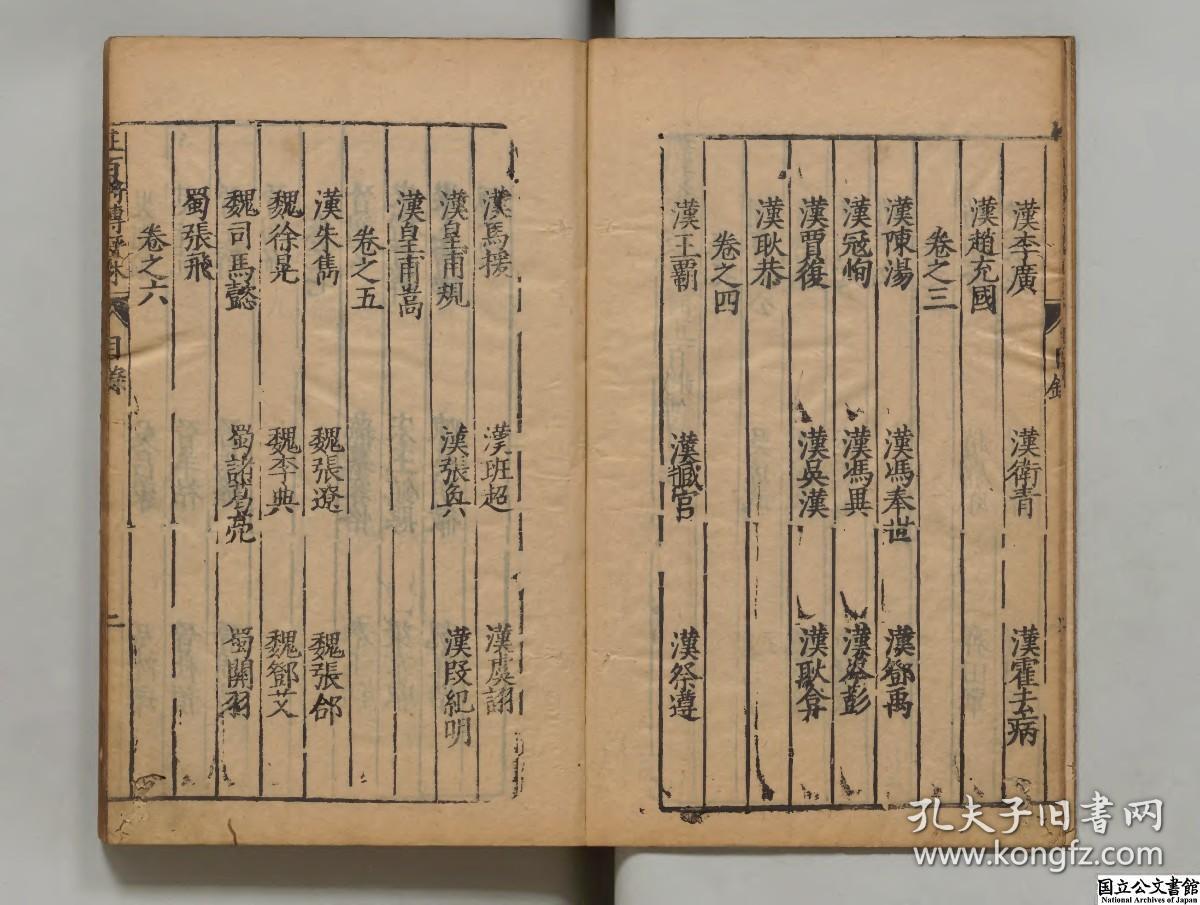 漢李廣 漢衛青 漢霍去病
漢趙充國
卷之三
漢陳湯 漢馮奉世 漢鄧禹
漢冦恂 漢馮異 漢岑彭
漢賈復 漢吳漢 漢耿弇
漢耿恭
卷之四
漢王霸 漢臧宮 漢祭遵
目錄
漢馬援 漢班超 漢虞詡
漢皇甫規 漢張奐 漢段紀明
漢皇甫嵩
卷之五
漢朱雋 魏張遼 魏張郃
魏徐晃 魏李典 魏鄧艾
魏司馬懿 蜀諸葛亮 蜀關羽
蜀張飛
卷之六
百將傳 目錄 二
孔夫子旧书网
www.kongfz.com
国立公文書館
National Archives of Japan